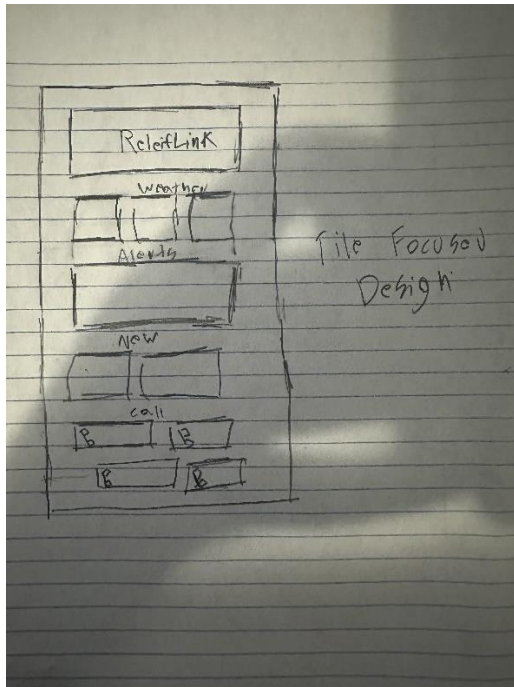 ReleifLink
Weather
Alerts
New
Call
B B
B B
Tile Focused
Design